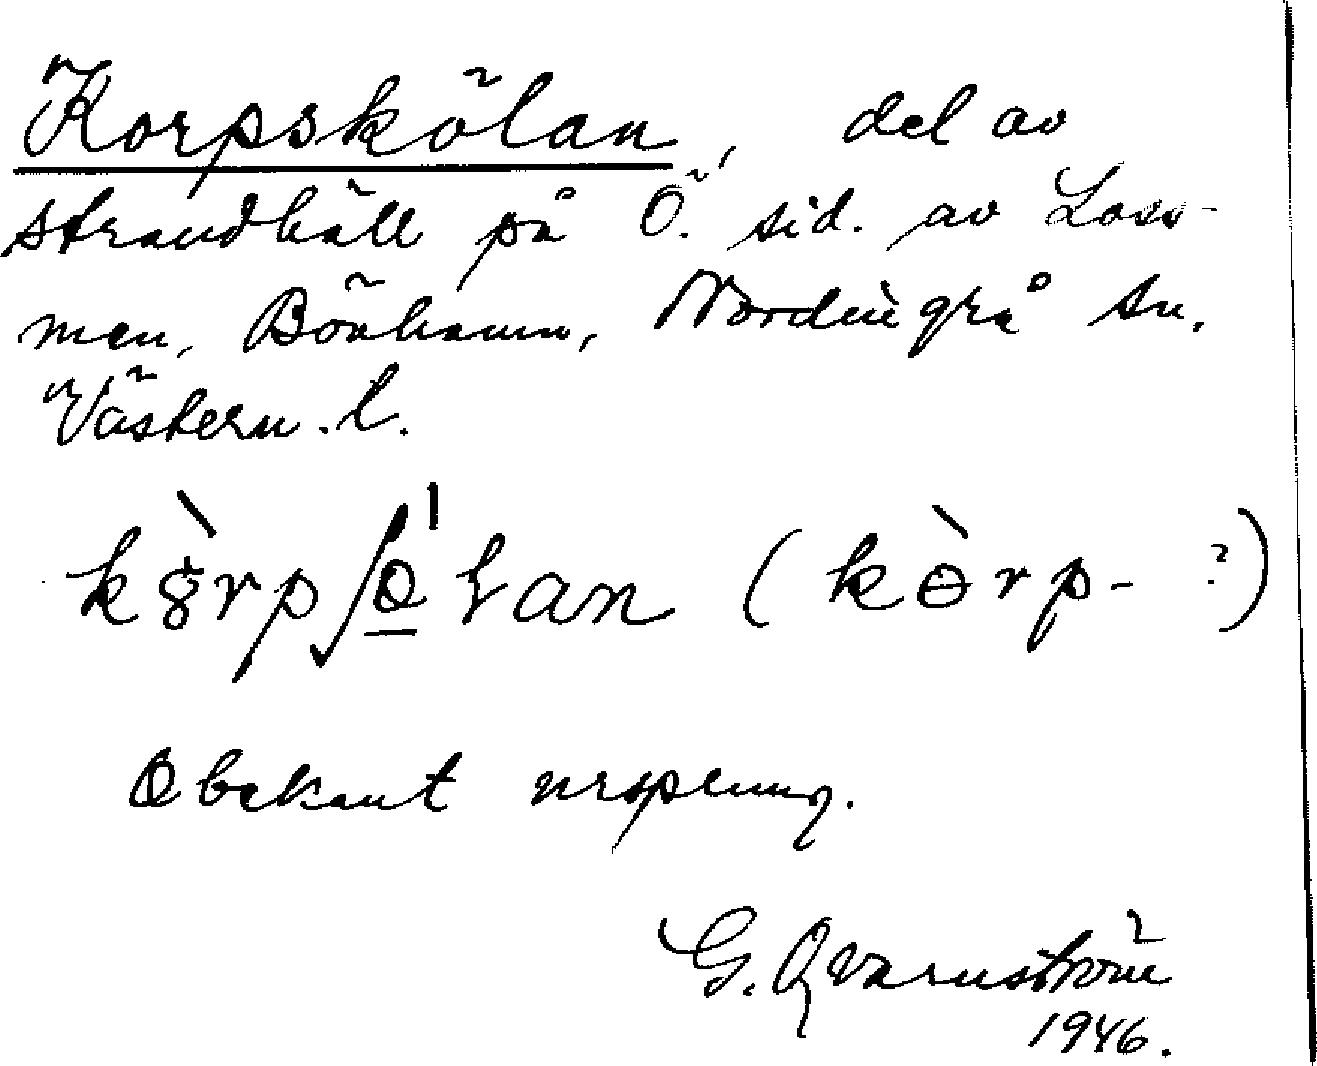 Korpskölan, del av
strandhäll på Ö. sid. av Loss-
men, Bönhamn, Nordingrå sn,
Västern.l.
kòrpʃɵ̱ˈɽan (kɵ̀rp- ?)
Obekant ursprung.
G. Qvarnström
1946.